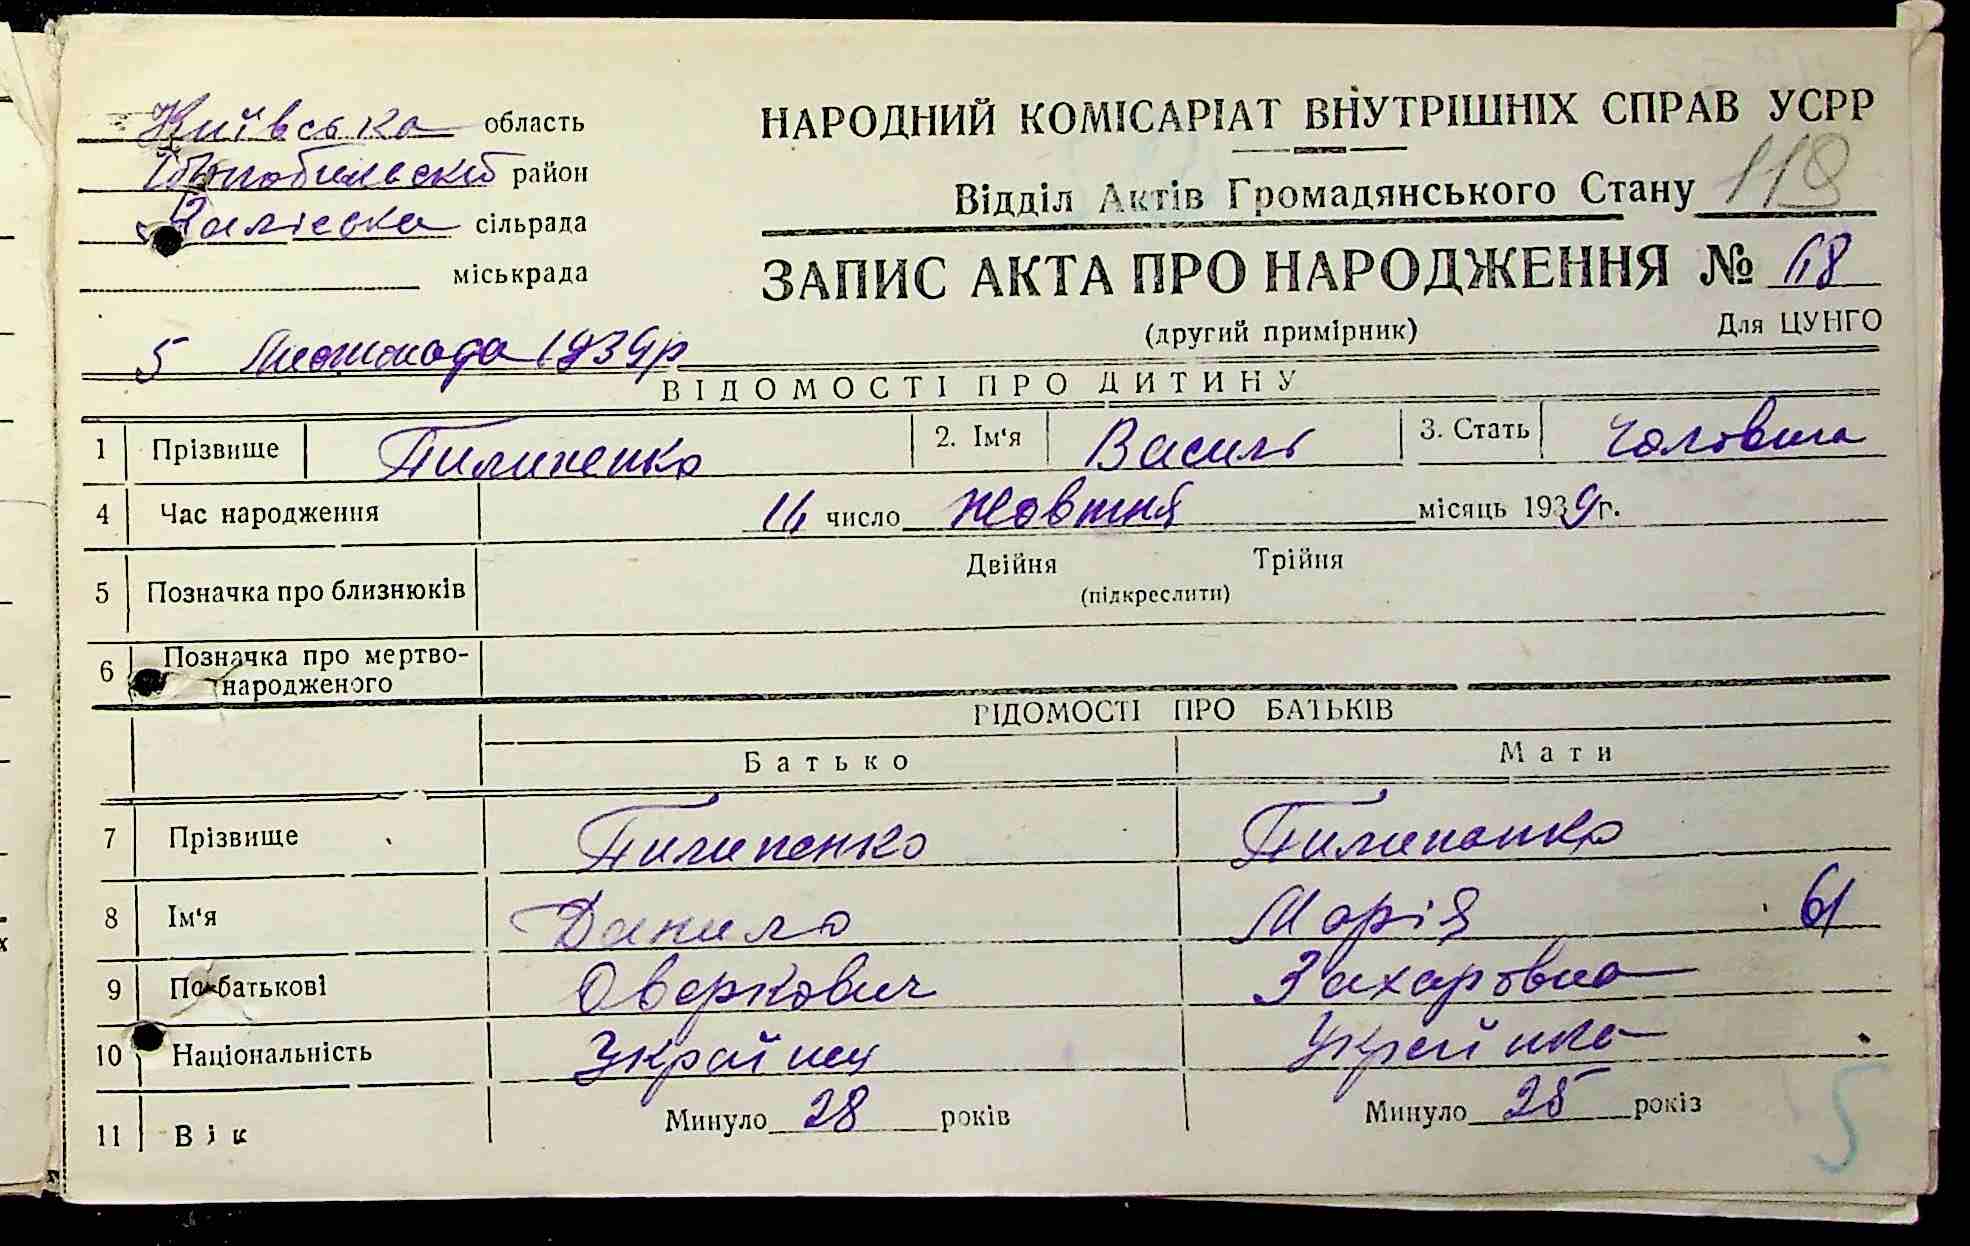 Київська область
Чорнобильский район
Заліська сільрада
міськрада
НАРОДНИЙ КОМІСАРІАТ ВНУТРІШНІХ СПРАВ УСРР
Відділ Актів Громадянського Стану 118
ЗАПИС АКТА ПРО НАРОДЖЕННЯ № 68
(другий примірник) Для ЦУНГО
5 Листопада 1939р
ВІДОМОСТІ ПРО ДИТИНУ
1 Прізвище Пилипенко 2. Ім'я Василь 3. Стать Чоловіча
4 Час народження число Жовтня місяць 1939г.
5 Позначка про близнюків Двійня Трійня
(підкреслити)
6 Позначка про мертво-
народженого
ВІДОМОСТІ ПРО БАТЬКІВ
Батько Мати
7 Прізвище Пилипенко Пилипенко
8 Ім'я Данило Марія 61
9 По батькові Оверкович Захаровна
10 Національність Украйнец Украйнка
11 Вік Минуло 28 років Минуло 25 років
5